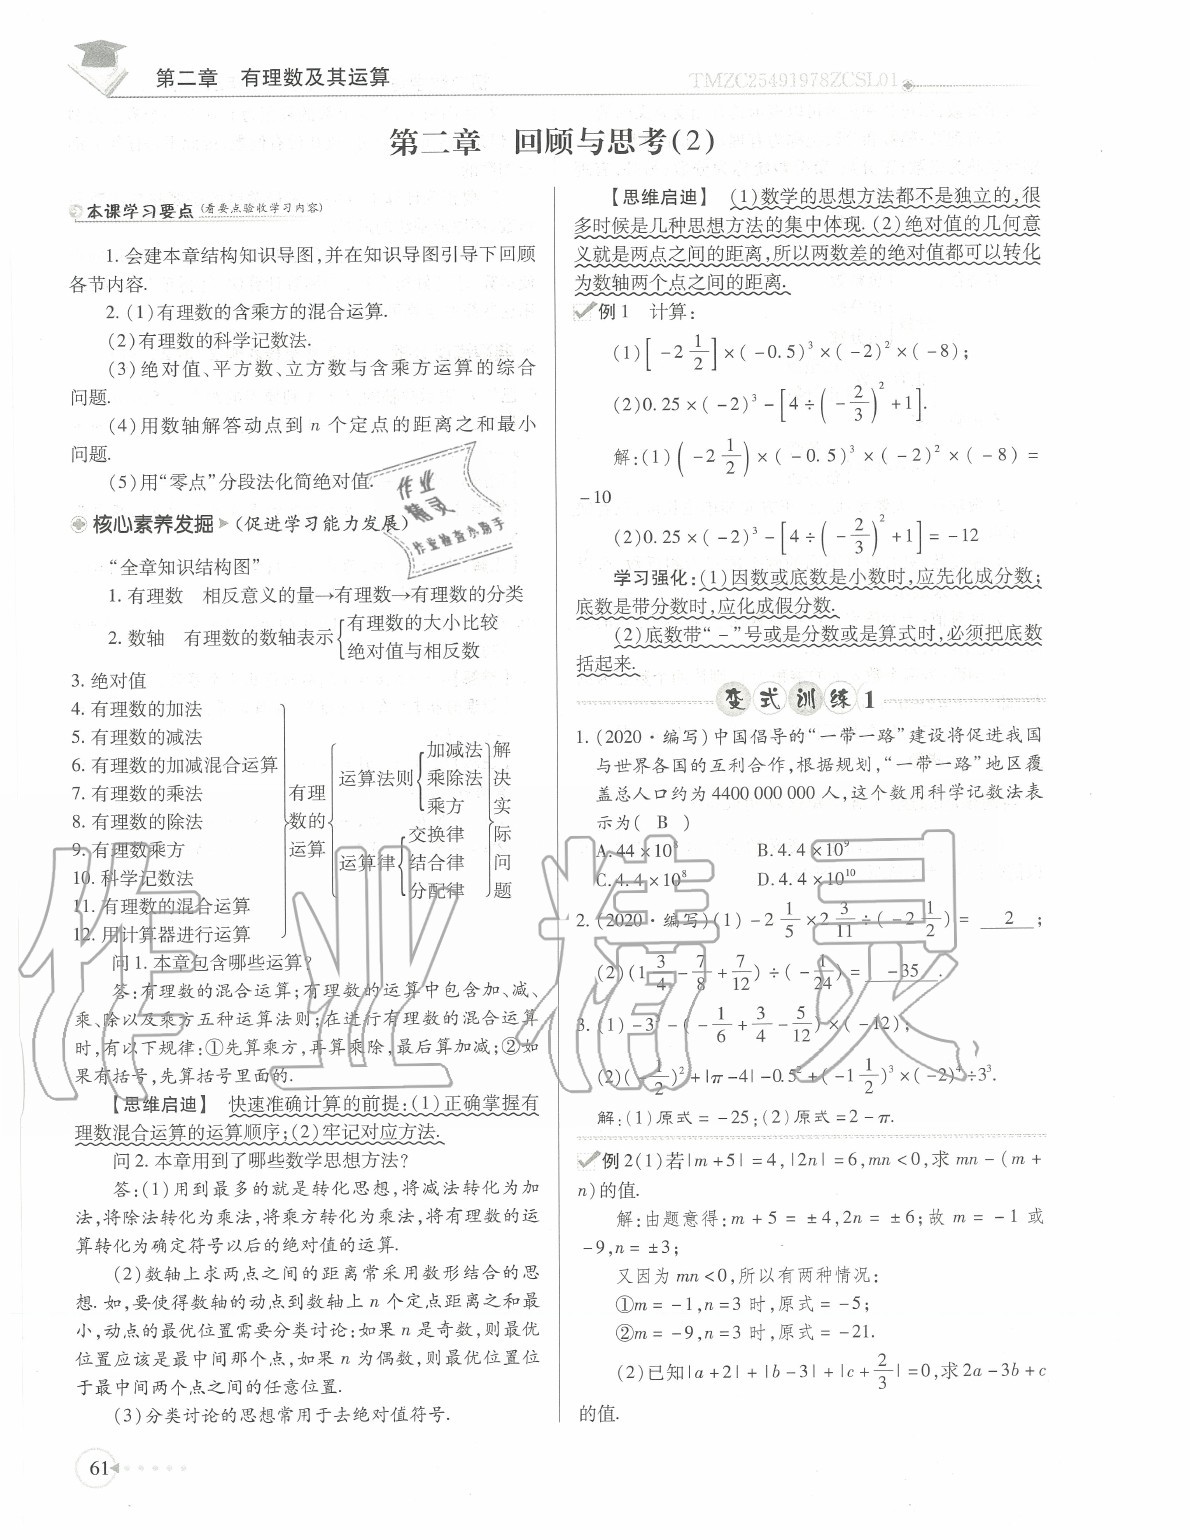 第二章 有理数及其运算
TMZC25491978ZCSL01
第二章 回顾与思考(2)
本课学习要点(看要点验收学习内容)
1. 会建本章结构知识导图,并在知识导图引导下回顾
各节内容.
2. (1)有理数的含乘方的混合运算.
(2)有理数的科学记数法.
(3)绝对值、平方数、立方数与含乘方运算的综合
问题.
(4)用数轴解答动点到 n 个定点的距离之和最小
问题.
(5)用“零点”分段法化简绝对值.
核心素养发掘 (促进学习能力发展)
“全章知识结构图”
1. 有理数 相反意义的量→有理数→有理数的分类
2. 数轴 有理数的数轴表示{有理数的大小比较
绝对值与相反数
3. 绝对值
4. 有理数的加法
5. 有理数的减法
6. 有理数的加减混合运算
7. 有理数的乘法
8. 有理数的除法
9. 有理数乘方
10. 科学记数法
11. 有理数的混合运算
12. 用计算器进行运算
有理
数的
运算
运算法则{加减法
乘除法
乘方
运算律{交换律
结合律
分配律
解
决
实
际
问
题
问 1. 本章包含哪些运算?
答:有理数的混合运算;有理数的运算中包含加、减、
乘、除以及乘方五种运算法则;在进行有理数的混合运算
时,有以下规律:①先算乘方,再算乘除,最后算加减;②如
果有括号,先算括号里面的.
【思维启迪】 快速准确计算的前提:(1)正确掌握有
理数混合运算的运算顺序;(2)牢记对应方法.
问 2. 本章用到了哪些数学思想方法?
答:(1)用到最多的就是转化思想,将减法转化为加
法,将除法转化为乘法,将乘方转化为乘法,将有理数的运
算转化为确定符号以后的绝对值的运算.
(2)数轴上求两点之间的距离常采用数形结合的思
想. 如,要使得数轴的动点到数轴上 n 个定点距离之和最
小,动点的最优位置需要分类讨论:如果 n 是奇数,则最优
位置应该是最中间那个点,如果 n 为偶数,则最优位置位
于最中间两个点之间的任意位置.
(3)分类讨论的思想常用于去绝对值符号.
61
【思维启迪】 (1)数学的思想方法都不是独立的,很
多时候是几种思想方法的集中体现. (2)绝对值的几何意
义就是两点之间的距离,所以两数差的绝对值都可以转化
为数轴两个点之间的距离.
例1 计算:
(1)[-2 1/2]×(-0.5)³×(-2)²×(-8);
(2)0.25×(-2)³-[4÷(-2/3)²+1].
解:(1)(-2 1/2)×(-0.5)³×(-2)²×(-8)=
-10
(2)0.25×(-2)³-[4÷(-2/3)²+1]=-12
学习强化:(1)因数或底数是小数时,应先化成分数;
底数是带分数时,应化成假分数.
(2)底数带“-”号或是分数或是算式时,必须把底数
括起来.
变式训练1
1. (2020·编写)中国倡导的“一带一路”建设将促进我国
与世界各国的互利合作,根据规划,“一带一路”地区覆
盖总人口约为 4400 000 000 人,这个数用科学记数法表
示为( B )
A. 44×10⁸ B. 4.4×10⁹
C. 4.4×10⁸ D. 4.4×10¹⁰
2. (2020·编写)(1)-2 1/5×2 3/11÷(-2 1/2)= 2 ;
(2)(1 3/4-7/8+7/12)÷(-1/24)= -35 .
3. (1)-3²-(-1/6+3/4-5/12)×(-12);
(2)(-1/2)²+|π-4|-0.5²+(-1 1/2)³×(-2)⁴÷3³.
解:(1)原式=-25;(2)原式=2-π.
例2(1)若|m+5|=4,|2n|=6,mn<0,求 mn-(m+
n)的值.
解:由题意得:m+5=±4,2n=±6;故 m=-1 或
-9,n=±3;
又因为 mn<0,所以有两种情况:
①m=-1,n=3 时,原式=-5;
②m=-9,n=3 时,原式=-21.
(2)已知|a+2|+|b-3|+|c+2/3|=0,求2a-3b+c
的值.
作业
精灵
作业检查小助手
作业精灵